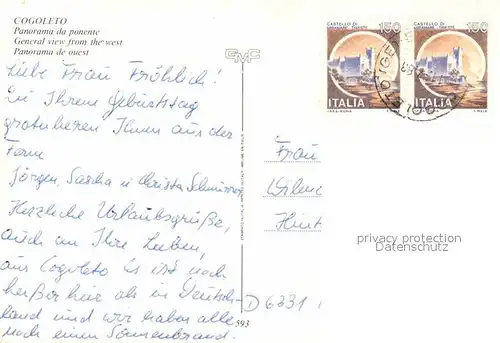 COGOLETO
Panorama da ponente
General view from the west
Panorama de ouest
Liebe Frau Fröhlich!
Zu Ihrem Geburtstag
gratulieren Ihnen aus der
Ferne
Jörgen, Sascha u. Christa
Herzliche Urlaubsgrüße,
auch an Ihre Lieben,
aus Cogoleto. Es ist noch
heißer hier als in Deutsch-
land und wir haben alle
noch einen Sonnenbrand.
593
EMC
CASTELLO DI
150
ITALIA
CASTELLO DI
150
ITALIA
Frau
Hint
D 6331
privacy protection
Datenschutz